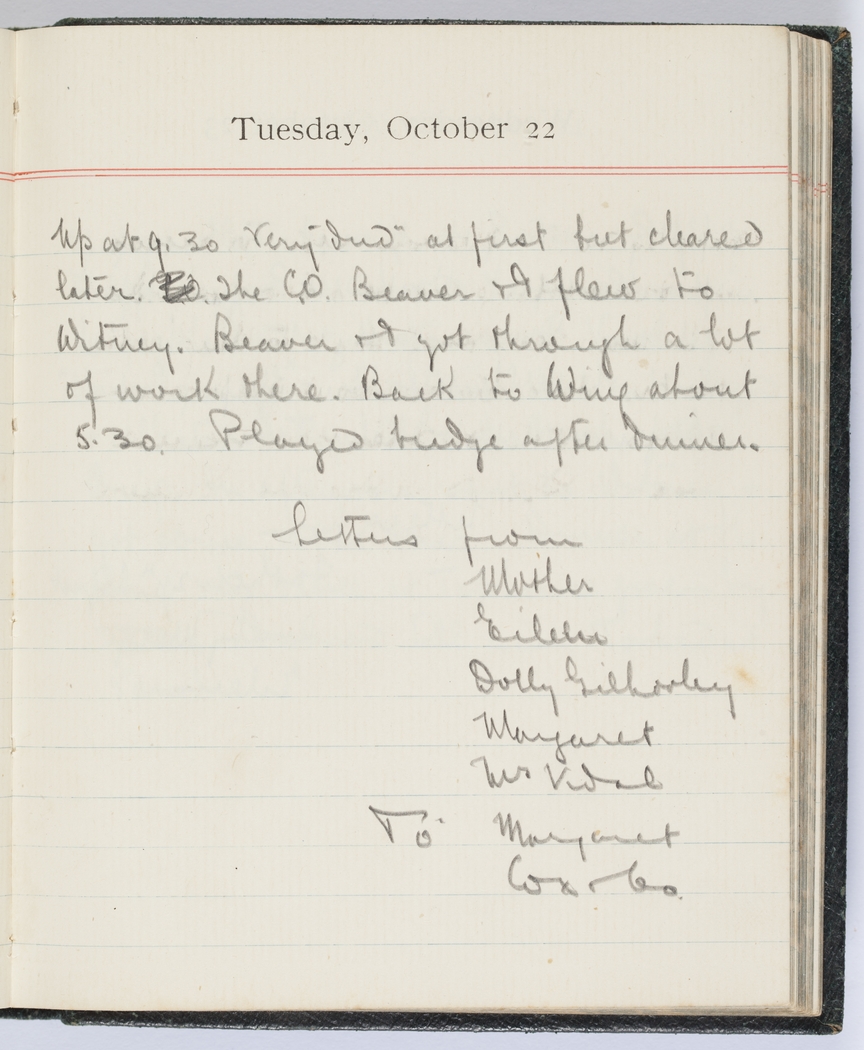 Tuesday, October 22
Up at 9.30 Very "dud" at first but cleared
later. The C.O. Beaver & I flew to
Witney. Beaver & I got through a lot
of work there. Back to Wing about
5.30. Played bridge after dinner.
Letters from
Mother
Eileen
Dolly Gilhooley
Margaret
Mrs Vidal
To Margaret
Cox & Co.